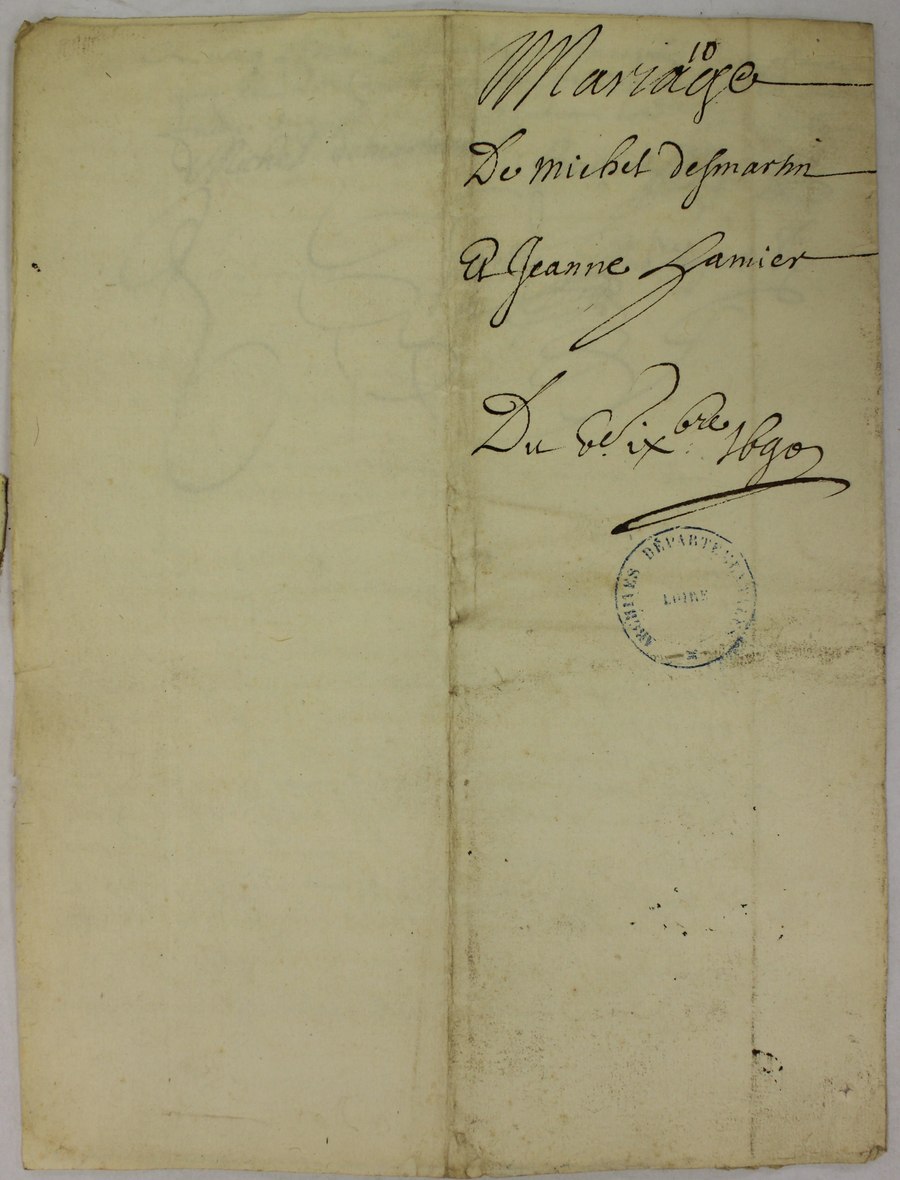 10
Mariage
De michel desmartin
Et Jeanne Lamier
Du 6e ixbre 1690
ARCHIVES DÉPARTEMENTALES
LOIRE